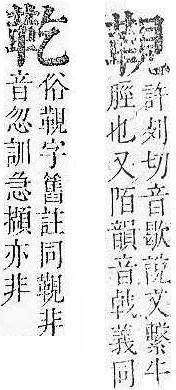 䩤
許列切音歇說文繫牛
脛也又陌韻音戟義同
俗䩤字舊註同䩤非
音忽訓急擷亦非